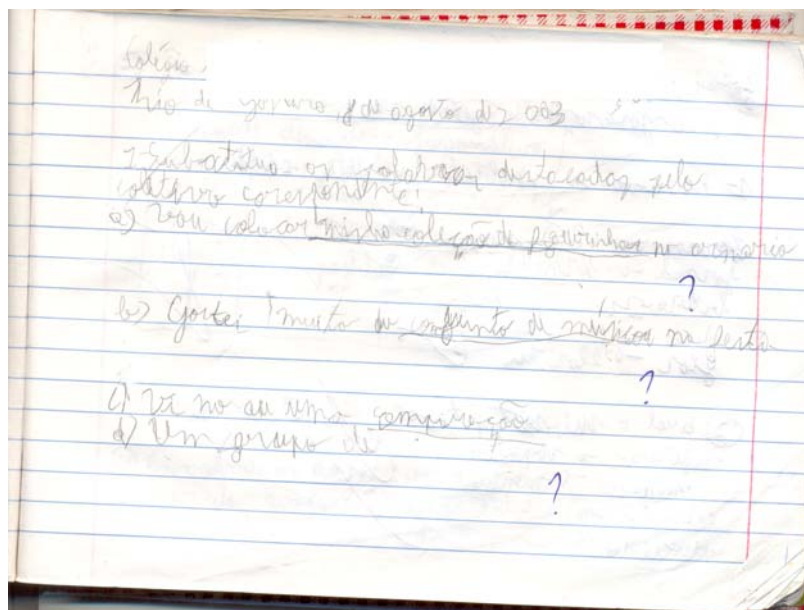 Colégio
Rio de Janeiro, 8 de agosto de 2003
1-Substitua as palavras destacadas pelo
coletivo corespondente:
a) Vou colocar minha coleção de figurinhas no armario
?
b) Gostei muito do conjunto de músicos na festa
?
c) Vi no ceu uma
d) Um grupo de
?